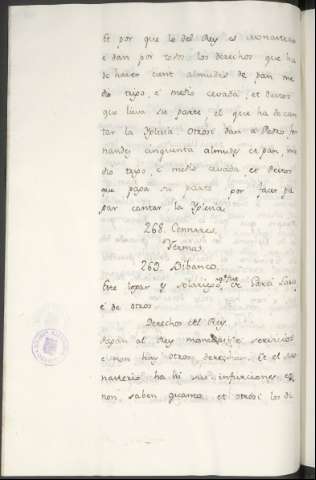 Et por que lo del Rey es Monasterio
e dan por todos los derechos que ha
de haver cient almudes de pan me
dio trigo, e medio cevada, et Deitos
que lieva su parte, el que ha de can
tar la Yglesia. Otrosi dan a Pedro Fer
nandez cinquenta almudes de pan, me
dio trigo, e medio cevada, et Deitos
que paga su parte por facer pa
gar cantar la Yglesia.
268. Cennares.
Yermas.
269. Bibanco.
Este logar y Solariego, que fue de Garci Laso,
e de otros.
Derechos del Rey.
Pagan al Rey monedas, e servicios
e non hay otros derechos. Et el Mo
nasterio ha hi sus infurciones e
non saben quanto, et otrosi los di